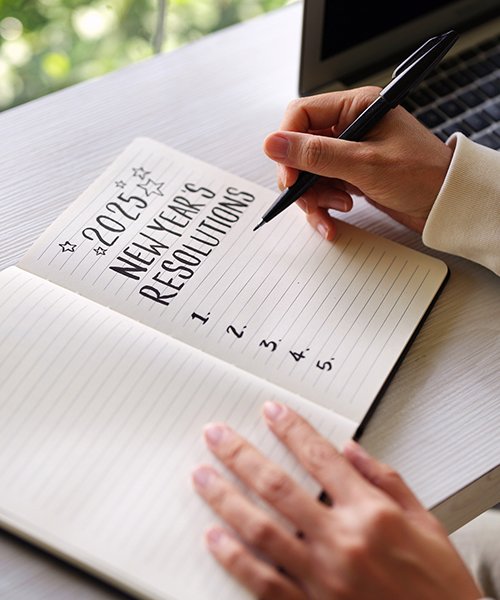 2025
NEW YEAR'S
RESOLUTIONS
1.
2.
3.
4.
5.